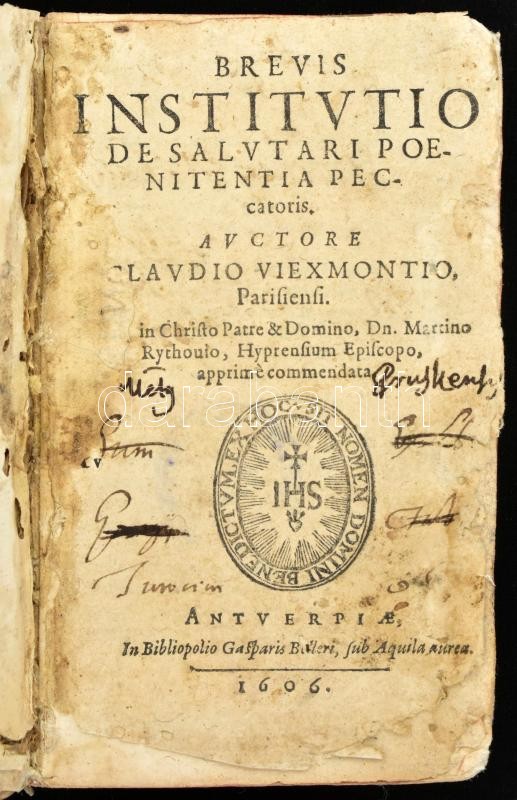 BREVIS
INSTITVTIO
DE SALVTARI POE-
NITENTIA PEC-
catoris.
AVCTORE
CLAVDIO VIEXMONTIO,
Parisiensi.
in Christo Patre & Domino, Dn. Martino
Rythouio, Hyprensium Episcopo,
apprimè commendata
darabanth
SIT NOMEN DOMINI BENEDICTVM. EX HOC.
IHS
ANTVERPIÆ,
In Bibliopolio Gasparis Belleri, sub Aquila aurea.
1606.